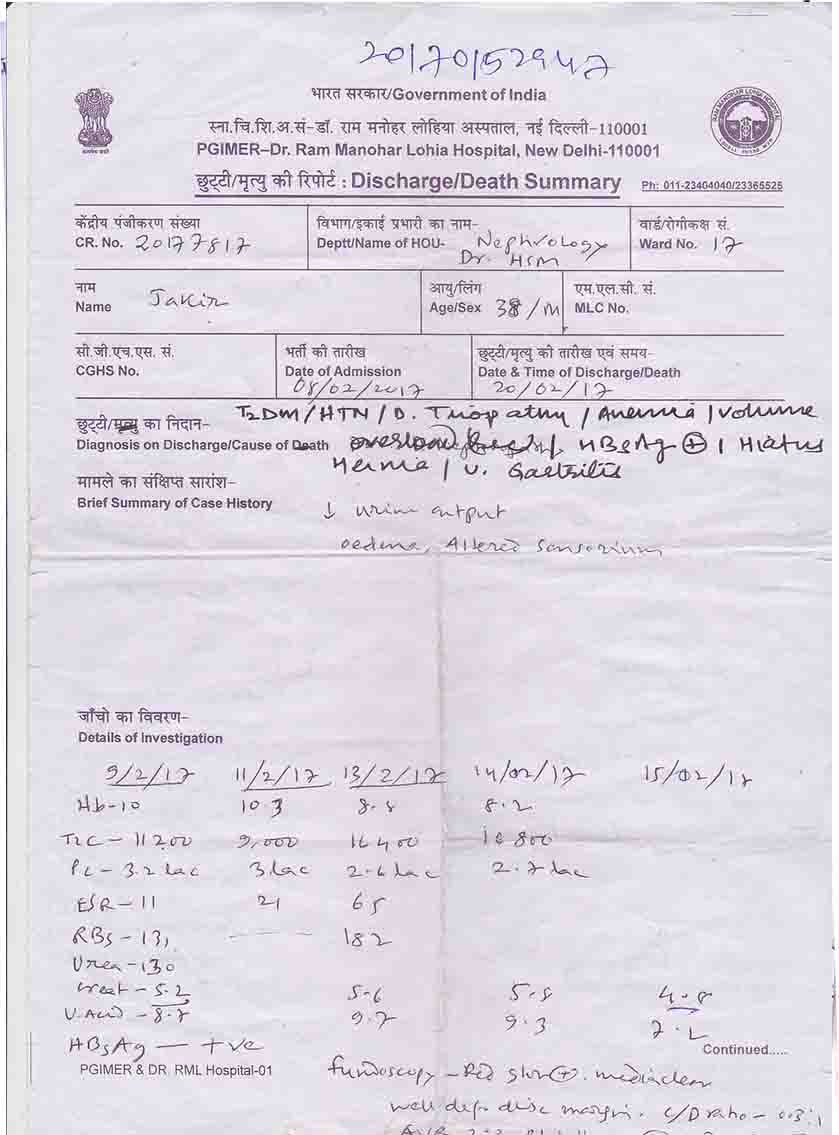 20170152947
भारत सरकार/Government of India
स्ना.चि.शि.अ.सं-डॉ. राम मनोहर लोहिया अस्पताल, नई दिल्ली-110001
PGIMER-Dr. Ram Manohar Lohia Hospital, New Delhi-110001
छुट्टी/मृत्यु की रिपोर्ट : Discharge/Death Summary Ph: 011-23404040/23365525
केंद्रीय पंजीकरण संख्या विभाग/इकाई प्रभारी का नाम- वार्ड/रोगीकक्ष सं.
CR. No. 20177817 Deptt/Name of HOU- Nephrology Ward No. 17
Dr. HSM
नाम आयु/लिंग एम.एल.सी. सं.
Name Jakir Age/Sex 38/M MLC No.
सी.जी.एच.एस. सं. भर्ती की तारीख छुट्टी/मृत्यु की तारीख एवं समय-
CGHS No. Date of Admission Date & Time of Discharge/Death
08/02/2017 20/02/17
छुट्टी/मृत्यु का निदान- T2DM/HTN/D. Triopathy/Anemia/volume
Diagnosis on Discharge/Cause of Death overload / HBsAg ⊕ / Hiatus
Hernia / Gastritis
मामले का संक्षिप्त सारांश-
Brief Summary of Case History ↓ urine output
oedema, Altered Sensorium
जाँचो का विवरण-
Details of Investigation
9/2/17 11/2/17 13/2/17 14/02/17 15/02/17
Hb-10 10.3 8.8 8.2
TLC-11200 9,000 16400 800
PC-3.2 lac 3 lac 2.6 lac 2.7 lac
ESR-11 21 65
RBS-131 182
Urea-130
Creat-5.2 5.6 5.8 4.8
U.Acid-8.7 9.7 9.3 7.2
HBsAg — +ve Continued.....
PGIMER & DR. RML Hospital-01 fundoscopy - Red glow ⊕. media clear
well def disc margin. C/D ratio - 0.3:1